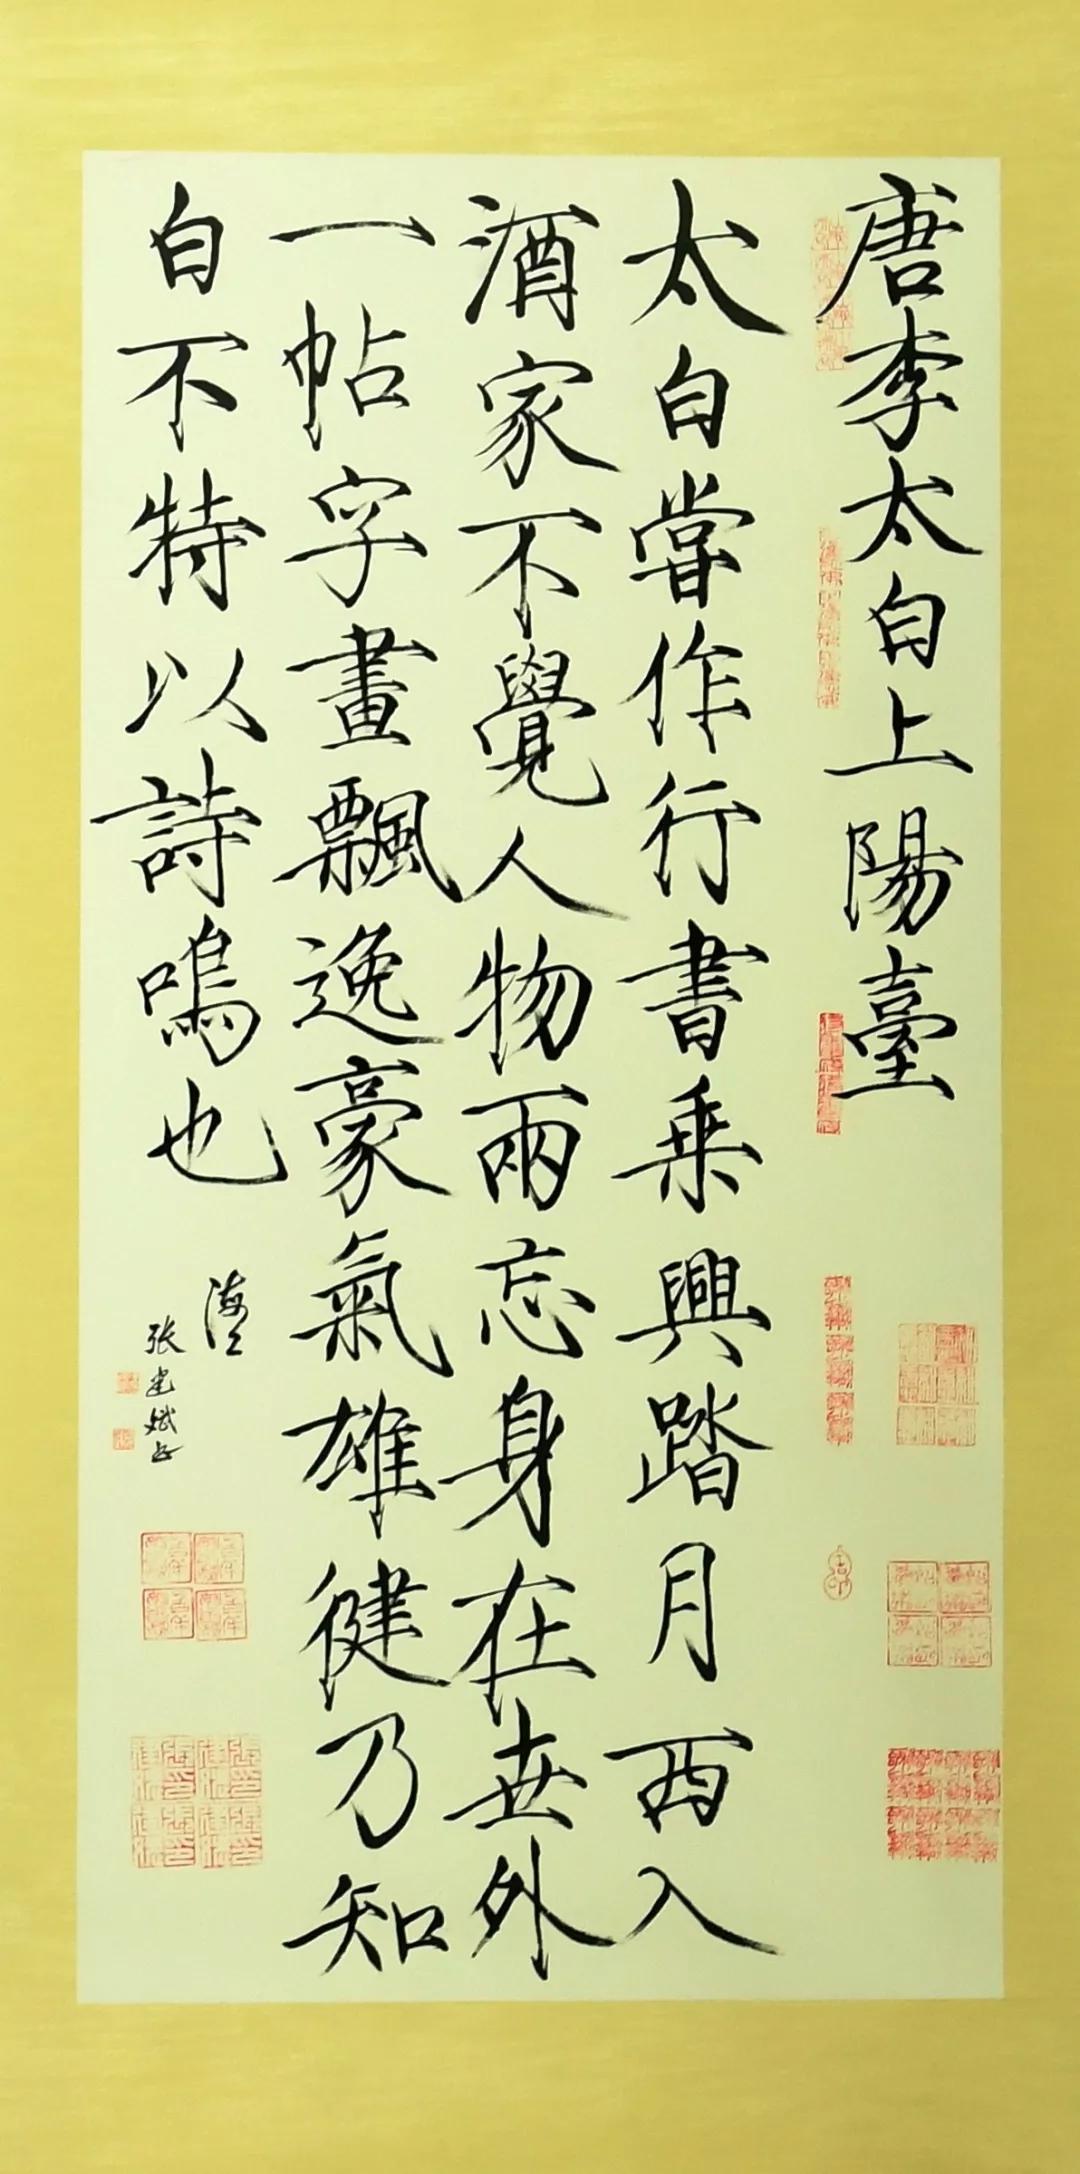 唐李太白上陽臺
太白嘗作行書乗興踏月西入
酒家不覺人物兩忘身在世外
一帖字畫飄逸豪氣雄健乃知
白不特以詩鳴也
张建斌书